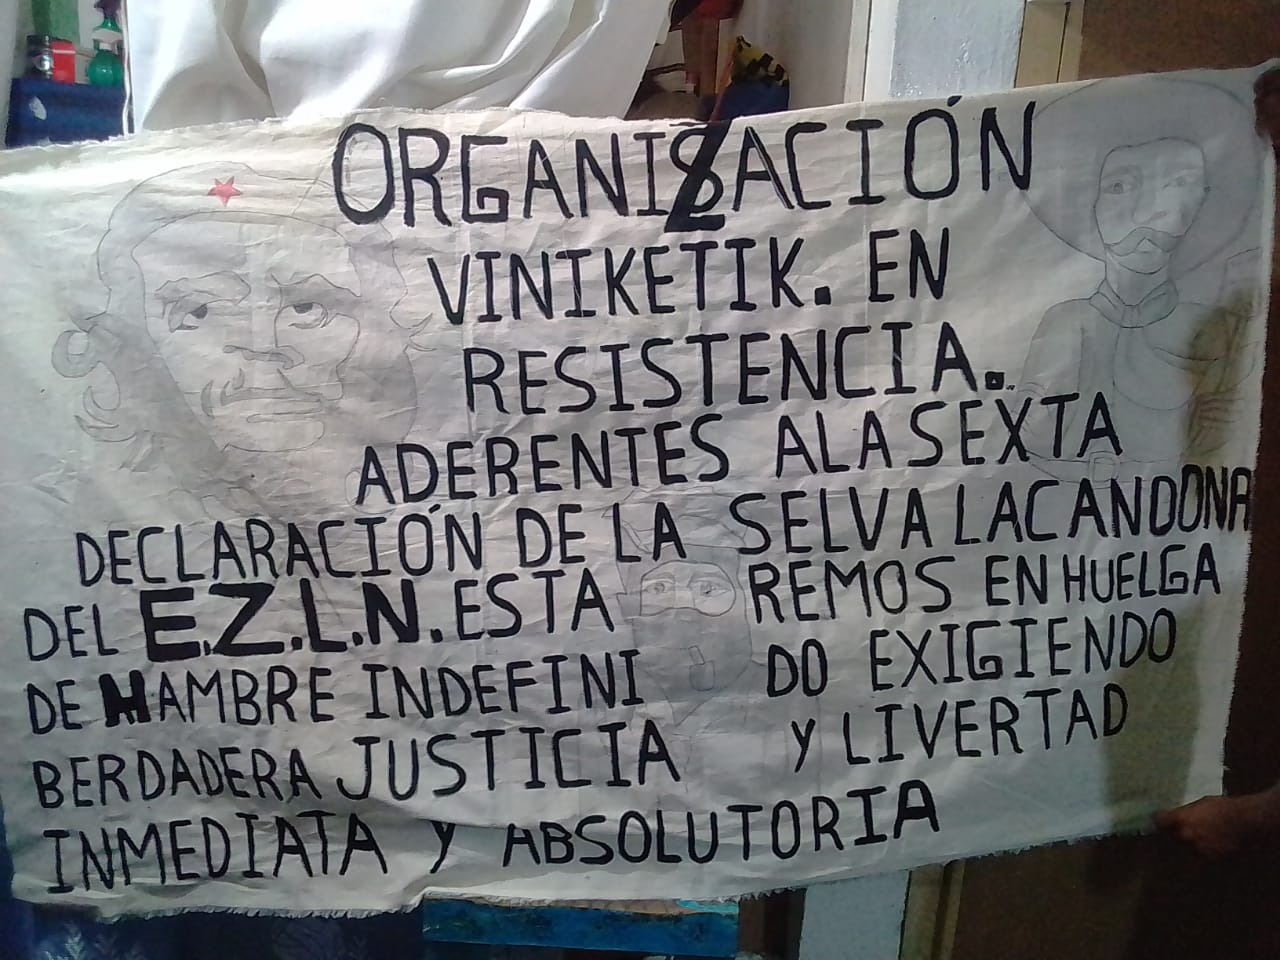 ORGANIZACIÓN
VINIKETIK. EN
RESISTENCIA.
ADERENTES ALA SEXTA
DECLARACIÓN DE LA SELVA LACANDONA
DEL E.Z.L.N. ESTA REMOS EN HUELGA
DE HAMBRE INDEFINI DO EXIGIENDO
BERDADERA JUSTICIA Y LIVERTAD
INMEDIATA Y ABSOLUTORIA